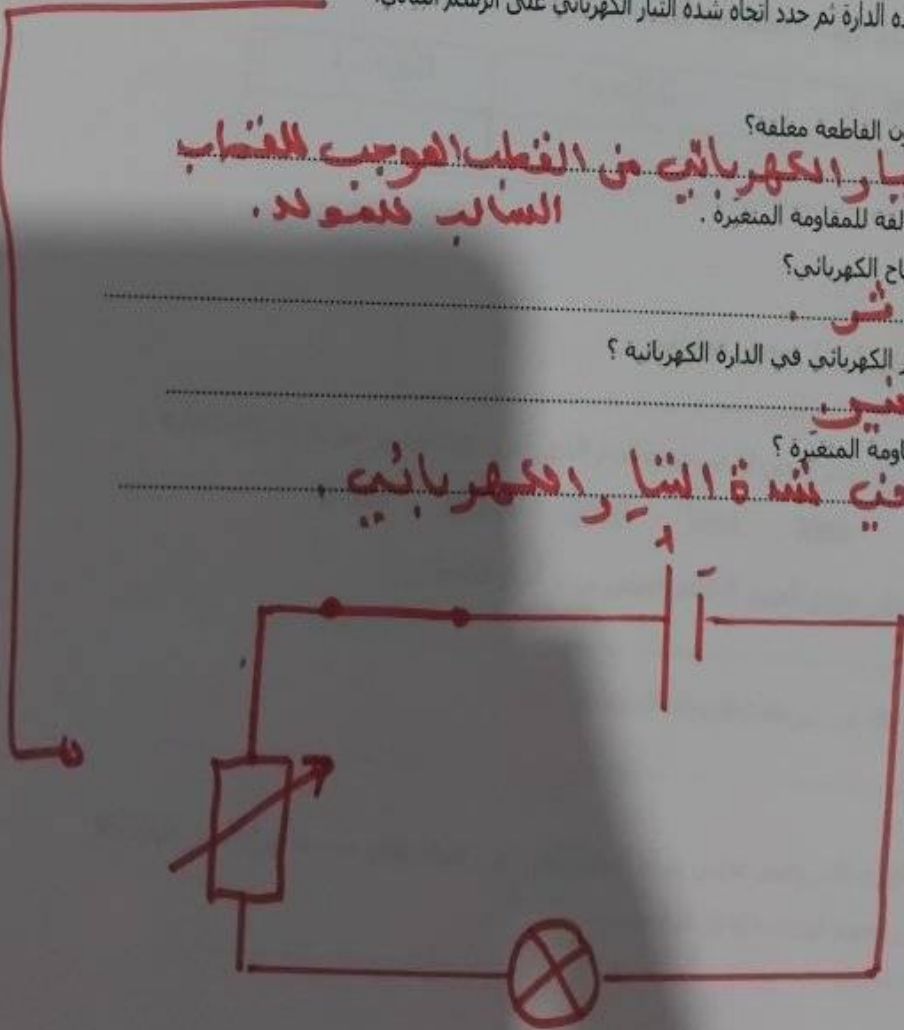 ه الدارة ثم حدد اتجاه شدة التيار الكهربائي على الرسم التالي.
ن القاطعة مغلقة؟
يار الكهربائي من القطب الموجب للقطب
السالب للمولد.
لفة للمقاومة المتغيرة .
اح الكهربائي؟
ر الكهربائي في الدارة الكهربائية ؟
اومة المتغيرة ؟
في شدة التيار الكهربائي .
+ -